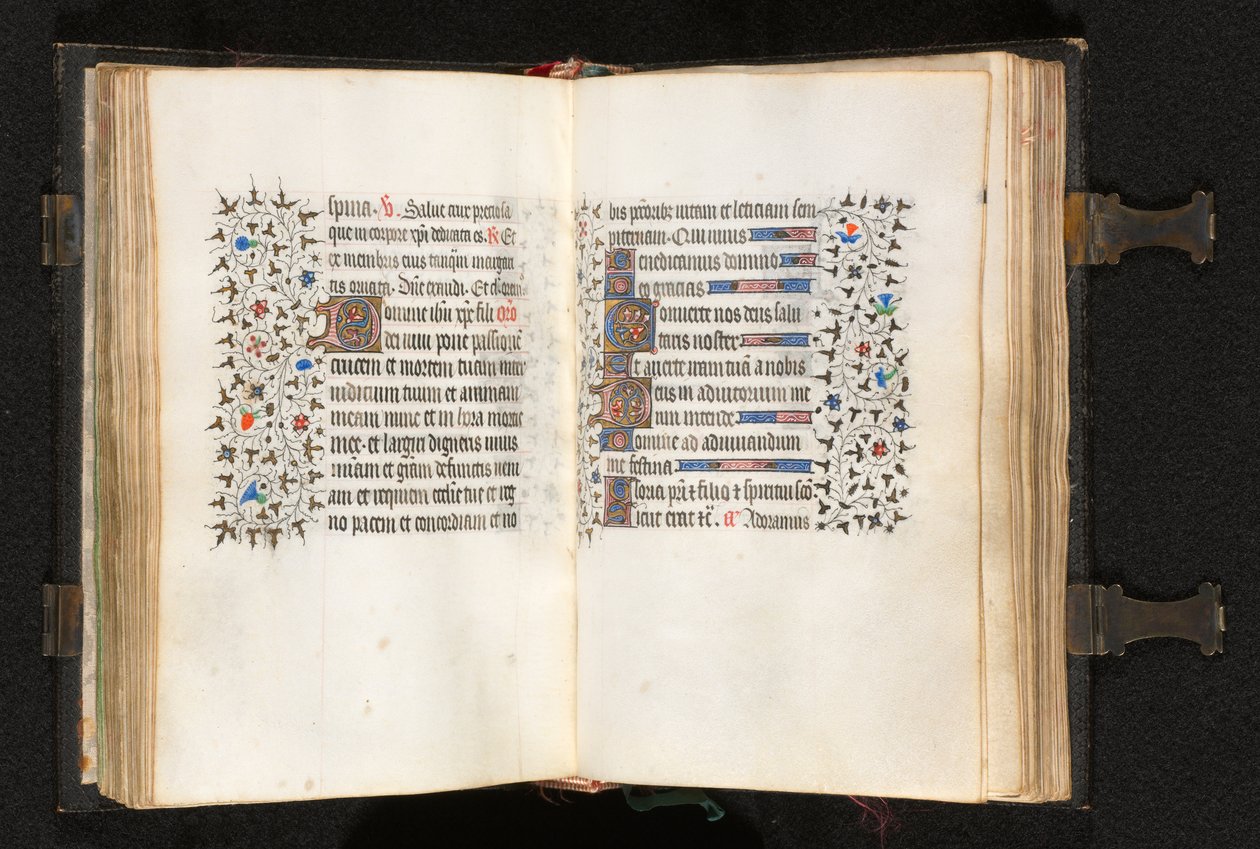 spina. V. Salue crux preciosa
que in corpore xpi dedicata es. R Et
ex membris eius tanq̄m margari
tis ornata. Dn̄e exaudi. Et clamor
omine ihū xpē fili oro
dei uiui pone passionē
crucem et mortem tuam inter
iudicium tuum et animam
meam nunc et in hora mortis
mee. et largiri digneris uiuis
miam et gr̄am defunctis ueni
am et requiem ecclīe tue et reg
no pacem et concordiam et no
bis pctōribꝫ uitam et leticiam sem
piternam. Qui uiuis
Benedicamus domino
Deo gracias
Conuerte nos deus salu
taris noster
Et auerte iram tuā a nobis
Deus in adiutorium me
um intende
Domine ad adiuuandum
me festina
Gloria pr̄i ⁊ filio ⁊ spiritui scō.
Sicut erat ⁊c̄. a Adoramus